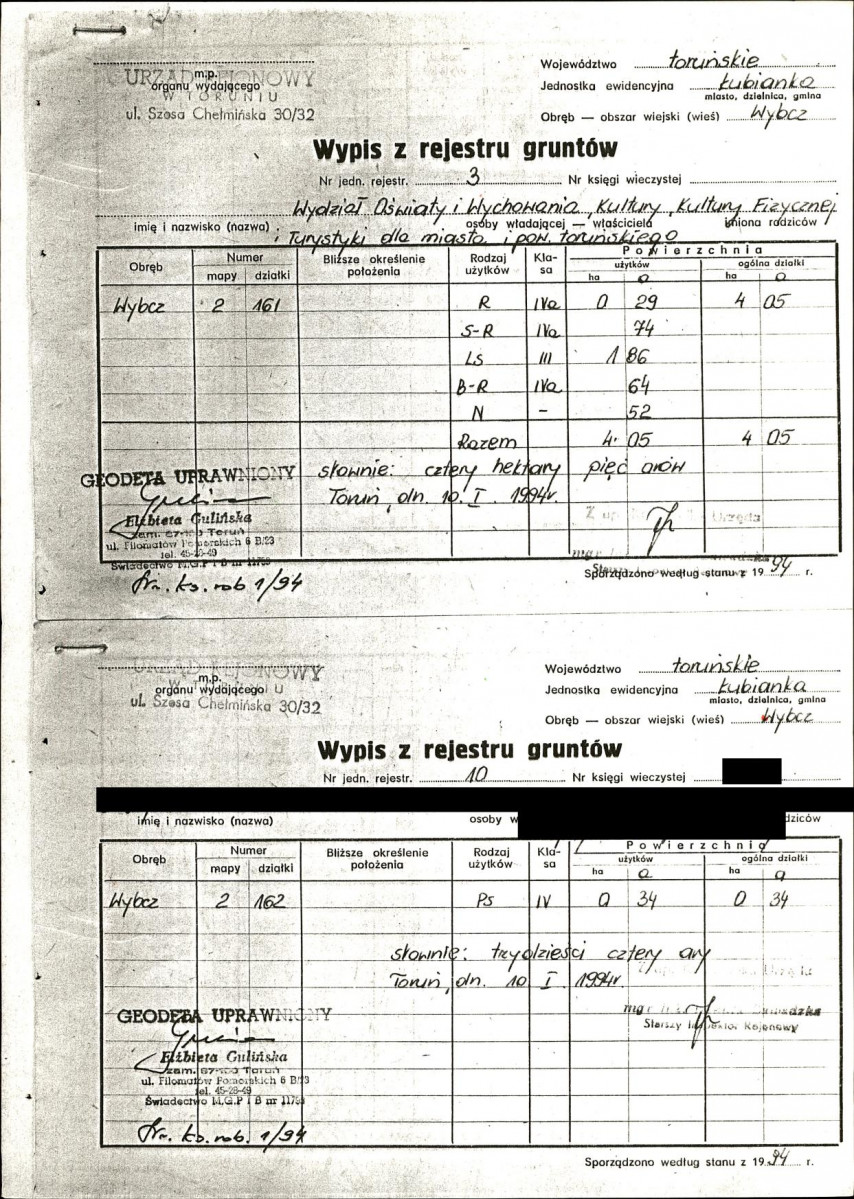 URZĄD REJONOWY
m.p.
organu wydającego
W TORUNIU
ul. Szosa Chełmińska 30/32
Województwo toruńskie
Jednostka ewidencyjna Łubianka
miasto, dzielnica, gmina
Obręb — obszar wiejski (wieś) Wybcz
Wypis z rejestru gruntów
Nr jedn. rejestr. 3 Nr księgi wieczystej
Wydział Oświaty i Wychowania, Kultury, Kultury Fizycznej
imię i nazwisko (nazwa) osoby władającej — właściciela imiona rodziców
i Turystyki dla miasta i pow. toruńskiego
Obręb Numer Bliższe określenie położenia Rodzaj użytków Kla-sa Powierzchnia
mapy działki użytków ogólna działki
ha a ha a
Wybcz 2 161 R IVa 0 29 4 05
S-R IVa 74
Ls III 1 86
B-R IVa 64
N - 52
Razem 4 05 4 05
słownie: cztery hektary pięć arów
Toruń, dn. 10. I. 1994r.
GEODETA UPRAWNIONY
Elżbieta Gulińska
zam. 87-100 Toruń
ul. Filomatów Pomorskich 6 B/23
tel. 45-28-49
Świadectwo M.G.P i B nr
Z up. Urzędu
mgr
Sporządzono według stanu z 1994 r.
Nr. ks. rob 1/94
URZĄD REJONOWY
m.p.
organu wydającego
ul. Szosa Chełmińska 30/32
Województwo toruńskie
Jednostka ewidencyjna Łubianka
miasto, dzielnica, gmina
Obręb — obszar wiejski (wieś) Wybcz
Wypis z rejestru gruntów
Nr jedn. rejestr. 10 Nr księgi wieczystej
imię i nazwisko (nazwa) osoby w dziców
Obręb Numer Bliższe określenie położenia Rodzaj użytków Kla-sa Powierzchnia
mapy działki użytków ogólna działki
ha a ha a
Wybcz 2 162 Ps IV 0 34 0 34
słownie: trzydzieści cztery ary
Toruń, dn. 10 I 1994r.
mgr
Starszy Inspektor Rejonowy
GEODETA UPRAWNIONY
Elżbieta Gulińska
zam. 87-100 Toruń
ul. Filomatów Pomorskich 6 B/23
tel. 45-28-49
Świadectwo M.G.P i B nr
Nr. ks. rob. 1/94
Sporządzono według stanu z 1994 r.